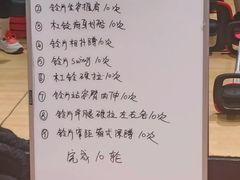 ② 铃片坐姿推肩 10次
③ 杠铃俯身划船 10次
④ 铃片相扑蹲 10次
⑤ 铃片 swing 10次
⑥ 杠铃硬拉 10次
⑦ 铃片站姿臂屈伸 10次
⑧ 铃片单腿硬拉左右各10次
⑨ 铃片窄距 深蹲 10次
完成 10 轮